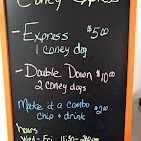 Coney Express
- Express $5.00
1 coney dog
- Double Down $10.00
2 coney dogs
Make it a combo
chip & drink $2.00
hours
Wed - Fri